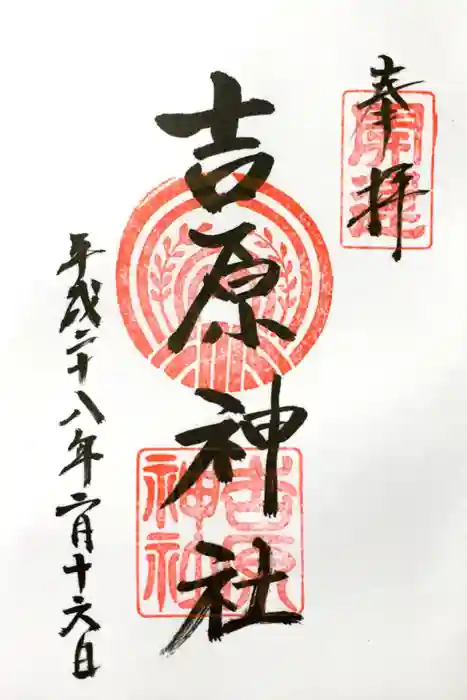 奉拝
開運
吉原神社
吉原神社
平成二十八年六月十六日